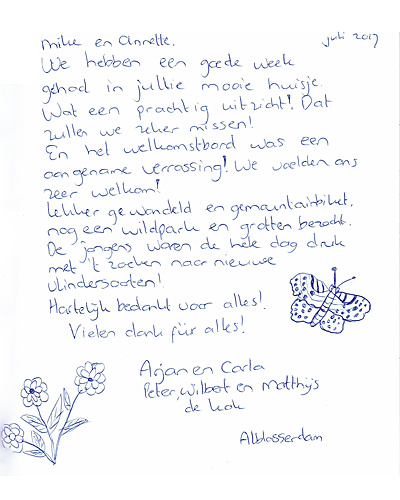 Mike en Annette, juli 2017
We hebben een goede week
gehad in jullie mooie huisje.
Wat een prachtig uitzicht! Dat
zullen we zeker missen!
En het welkomstbord was een
aangename verrassing! We voelden ons
zeer welkom!
Lekker gewandeld en gemountainbiket,
nog een wildpark en grotten bezocht.
De jongens waren de hele dag druk
met 't zoeken naar nieuwe
vlindersoorten!
Hartelijk bedankt voor alles!
Vielen dank für alles!
Arjan en Carla
Peter, Wilbert en Matthijs
de Kok
Alblasserdam